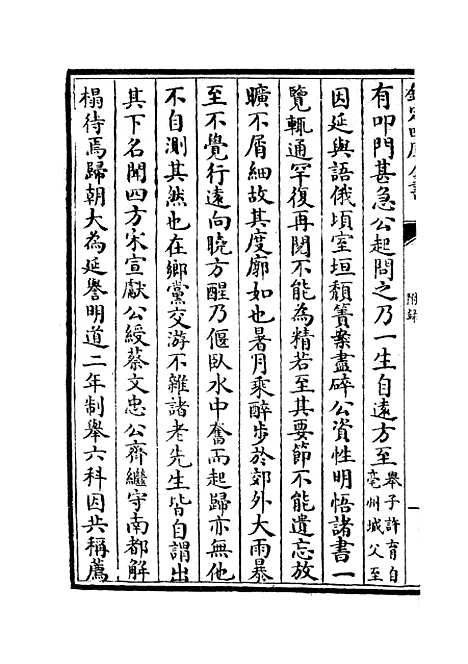 欽定四庫全書
附錄
有叩門甚急公起問之乃一生自遠方至舉子許育自亳州城父至
因延與語俄頃室垣頹簣案盡碎公資性明悟諸書一
覽輒通罕復再閱不能為精若至其要節不能遺忘放
曠不屑細故其度廓如也暑月乘醉步於郊外大雨暴
至不覺行遠向曉方醒乃偃臥水中奮而起歸亦無他
不自測其然也在鄉黨交游不雜諸老先生皆自謂出
其下名聞四方宋宣獻公綬蔡文忠公齊繼守南都解
榻待焉歸朝大為延譽明道二年制舉六科因共稱薦